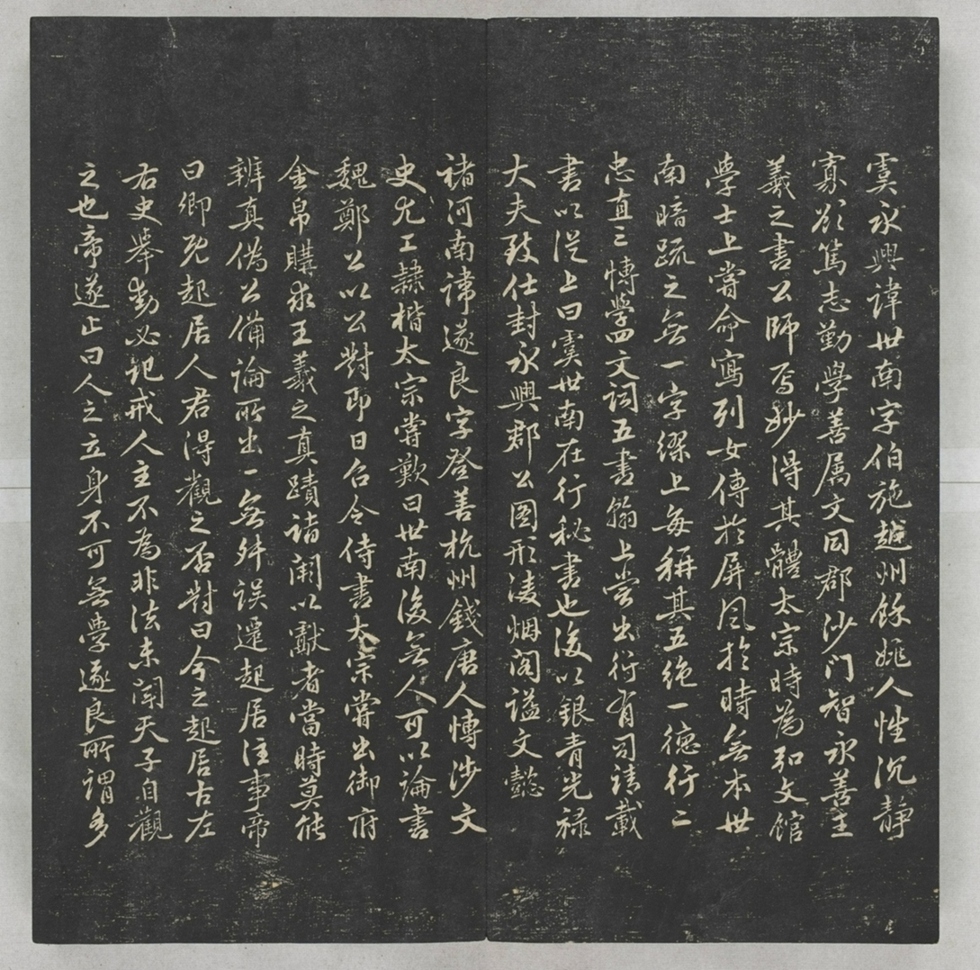 虞永興諱世南字伯施越州餘姚人性沉靜
寡欲篤志勤學善属文同郡沙门智永善王
羲之書公師焉妙得其體太宗時為弘文館
學士上嘗命寫列女傳於屏风於時無本世
南暗疏之無一字繆上每稱其五絶一德行二
忠直三博學四文词五書翰上尝出行有司请載
書以從上曰虞世南在行秘書也後以銀青光禄
大夫致仕封永興郡公图形凌烟阁謚文懿
褚河南諱遂良字登善杭州錢唐人博涉文
史尤工隷楷太宗嘗歎曰世南後無人可以論書
魏鄭公以公對即日召令侍書太宗嘗出御府
金帛購求王羲之真蹟诸闻以獻者當時莫能
辨真偽公備論所出一無舛误遷起居注事帝
曰卿既起居人君得觀之否對曰今之起居古左
右史舉動必记戒人主不為非法未聞天子自觀
之也帝遂止曰人之立身不可無學遂良所謂多